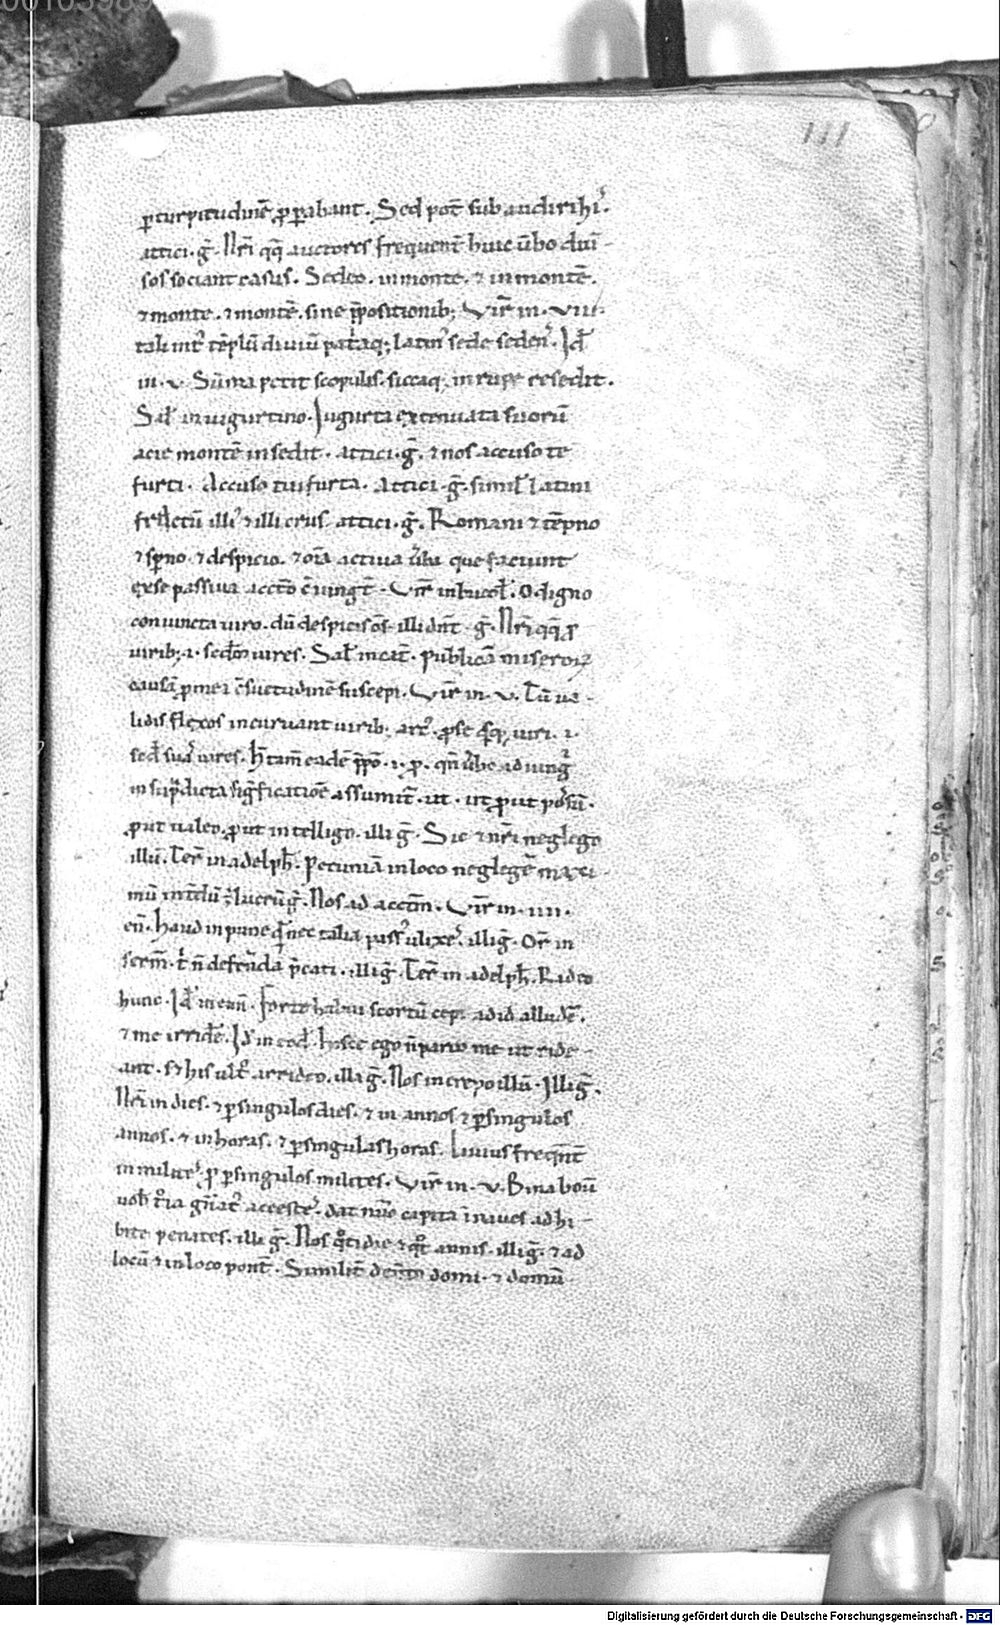 111
ꝑturpitudinē ꝓꝑabant. Sed pot̄ subaudiri hi͛.
attici. g̅. Nr̄i qq̄ auctores frequent̄ huic ūbo diūi-
sos sociant casus. Sedeo. in monte. ⁊ in montē.
⁊ monte. ⁊ montē. sine p̄positionib; Vir̄ in. VIII.
tali int͛ tēplū diuiū patͥaq; latin͛ sede seden͛. Id̄
in. v. Sūma petit scopuli. siccaq; in rupe resedit.
Sal̄ in iugurtino. Iugurta extenuata suorū
acie montē insedit. attici. g̅. ⁊ nos accuso te
furti. Accuso tui furta. Attici. g̅. simil̄ latini
illi͛ ⁊ illi erus. attici. g̅. Romani ⁊ tēpno
⁊ sꝑno. ⁊ despicio. ⁊ oīa actiua ūba que faciunt
ex se passiua acctō c̄iungt̄. Vir̄ in bucol̄. O digno
coniuncta uiro. dū despicis ōs. illi dn̄t. g̅. Nr̄i qq̄ ꝓ
uirib;. i. scd̄m uires. Sal̄ in cat̄. Publicā miseroꝝ
causā ꝓ mea c̄suetudine suscepi. Vir̄ in. v. Tū ua-
lidis flexos incuruant uirib; arc͛. ꝓ se qͥsq; uiri. i.
scd̄ suas uires. h̄ tam̄ eadē p̄po. i. ꝓ. qn̄ ūbo adiungͥ
in sup̄dicta sigficatiōe assumit̄. ut. ut ꝓut possū.
ꝓut ualeo. ꝓut intelligo. illi g̅. Sic ⁊ nr̄i neglego
illū. Ter̄ in adelph̄. Pecuniā in loco neglegē maxi-
mū lucrū g̅. Nos ad acctm̄. Vir̄ in. IIII.
en̄. haud inpune qͥdē nec talia pass͛ ulixe͛. illi g̅. Or̄ in
serm̄. illi g̅. Ter̄ in adelph̄. Rideo
hunc. Id̄ in eun̄. forte habui scortū cepi ad id alludē.
⁊ me irridē. Id̄ in eod̄. hisce ego n̄ paro me ut ride-
ant. s; his ult͛ arrideo. illi g̅. Nos increpo illū. Illi g̅.
Nr̄i in dies. ⁊ ꝑ singulos dies. ⁊ in annos ⁊ ꝑ singulos
annos. ⁊ in horas. ⁊ ꝑ singulas horas. Liuius freq̄nt̄
in milite͛. ꝓ ꝑ singulos milites. Vir̄ in. v. Bina boū
uob̄ tͦia gn̄at͛ aceste͛. dat nūo capita in naues adhi-
bite penates. illi g̅. Nos qͦtidie ⁊ qͦt annis. illi g̅. ⁊ ad
locū ⁊ in loco pont̄. Similit̄ domi. ⁊ domū
Digitalisierung gefördert durch die Deutsche Forschungsgemeinschaft - DFG